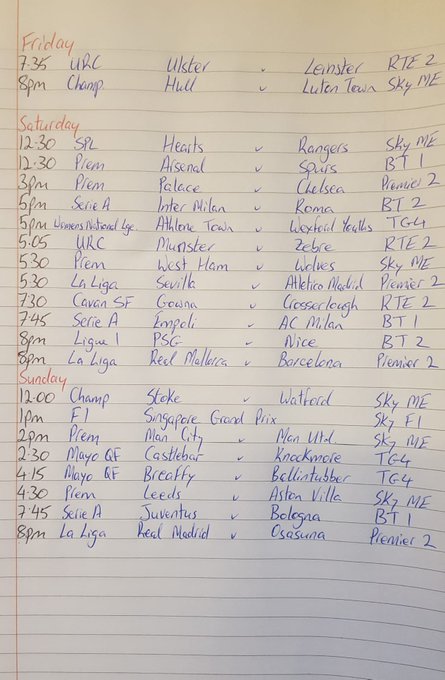 Friday
7.35 URC Ulster v Leinster RTE 2
8pm Champ Hull v Luton Town Sky ME
Saturday
12.30 SPL Hearts v Rangers Sky ME
12.30 Prem Arsenal v Spurs BT 1
3pm Prem Palace v Chelsea Premier 2
5pm Serie A Inter Milan v Roma BT 2
5pm Womens National Lge. Athlone Town v Wexford Youths TG4
5.05 URC Munster v Zebre RTE 2
5.30 Prem West Ham v Wolves Sky ME
5.30 La Liga Sevilla v Atletico Madrid Premier 2
7.30 Cavan SF Gowna v Crosserlough RTE 2
7.45 Serie A Empoli v AC Milan BT 1
8pm Ligue 1 PSG v Nice BT 2
8pm La Liga Real Mallorca v Barcelona Premier 2
Sunday
12.00 Champ Stoke v Watford Sky ME
1pm F1 Singapore Grand Prix Sky F1
2pm Prem Man City v Man Utd Sky ME
2.30 Mayo QF Castlebar v Knockmore TG4
4.15 Mayo QF Breaffy v Ballintubber TG4
4.30 Prem Leeds v Aston Villa Sky ME
7.45 Serie A Juventus v Bologna BT 1
8pm La Liga Real Madrid v Osasuna Premier 2